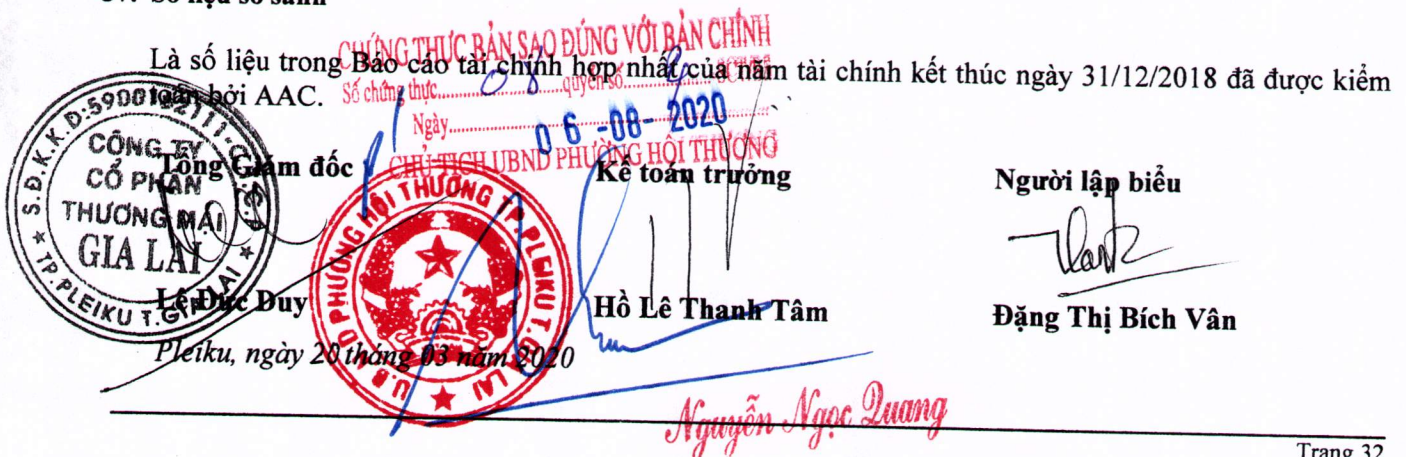 Số liệu so sánh
CHỨNG THỰC BẢN SAO ĐÚNG VỚI BẢN CHÍNH
Là số liệu trong Báo cáo tài chính hợp nhất của năm tài chính kết thúc ngày 31/12/2018 đã được kiểm
toán bởi AAC.
Số chứng thực 08 quyển số
Ngày 06-08-2020
CHỦ TỊCH UBND PHƯỜNG HỘI THƯƠNG
Tổng Giám đốc
Kế toán trưởng
Người lập biểu
CÔNG TY
CỔ PHẦN
THƯƠNG MẠI
GIA LAI
TP. PLEIKU T. GIA LAI
U.B.N.D PHƯỜNG HỘI THƯƠNG TP. PLEIKU T. GIA LAI
Lê Đức Duy
Hồ Lê Thanh Tâm
Đặng Thị Bích Vân
Pleiku, ngày 20 tháng 03 năm 2020
Nguyễn Ngọc Quang
Trang 32